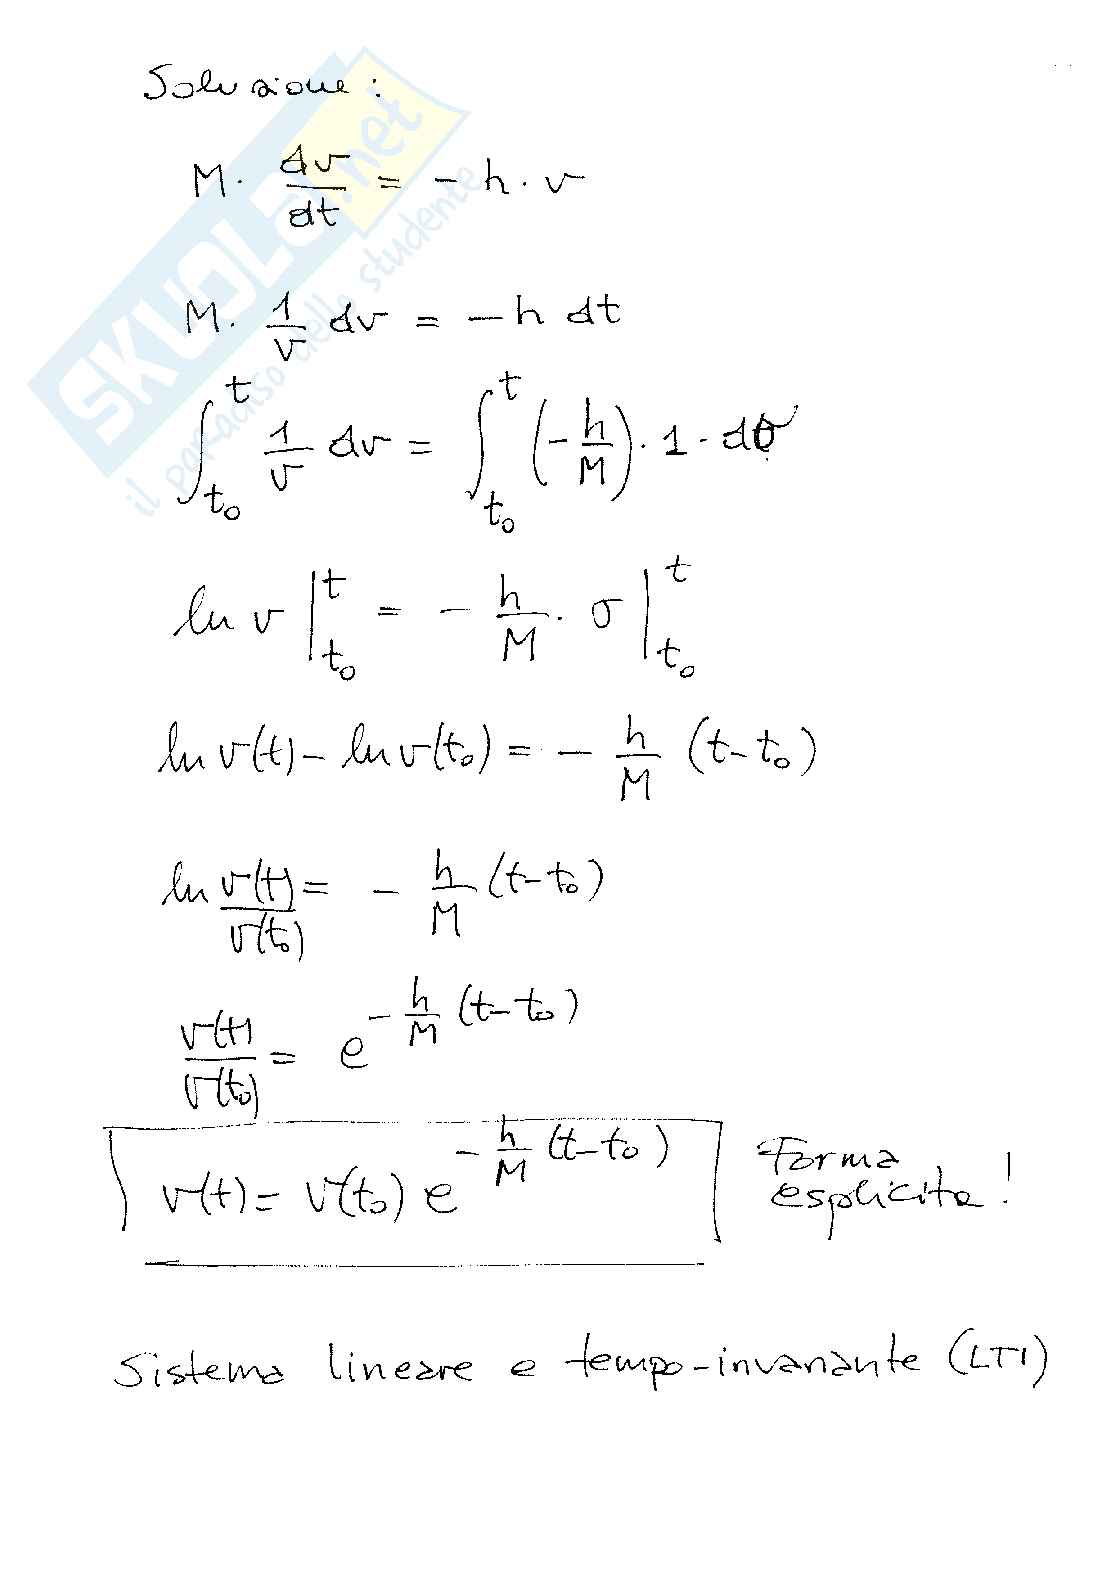 Soluzione:
M · dv/dt = - h · v
M · 1/v dv = - h dt
∫_{t₀}^{t} 1/v dv = ∫_{t₀}^{t} (- h/M) · 1 · dσ
ln v |_{t₀}^{t} = - h/M · σ |_{t₀}^{t}
ln v(t) - ln v(t₀) = - h/M (t - t₀)
ln v(t)/v(t₀) = - h/M (t - t₀)
v(t)/v(t₀) = e^{- h/M (t - t₀)}
v(t) = v(t₀) e^{- h/M (t - t₀)}
Forma
esplicita!
Sistema lineare e tempo-invariante (LTI)
SKUOLA.net
il paradiso dello studente